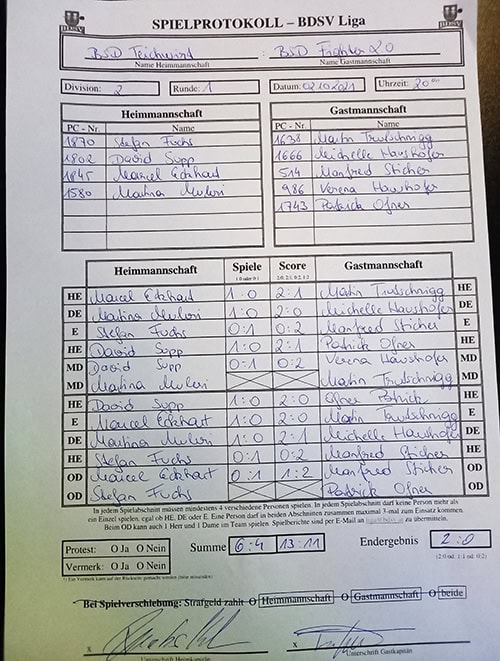 SPIELPROTOKOLL – BDSV Liga
BSD Teichwirt : BSD Fichtler 20
Name Heimmannschaft Name Gastmannschaft
Division: 2 Runde: 1 Datum: 02.10.2021 Uhrzeit: 20°°
Heimmannschaft Gastmannschaft
PC - Nr. Name PC - Nr. Name
1870 Stefan Fuchs 1638 Martin Trutschnigg
1802 David Supp 1666 Michelle Haushofer
1845 Marcel Eckhart 514 Manfred Sticher
1580 Martina Muleri 986 Verena Haushofer
1743 Patrick Ofner
Heimmannschaft Spiele Score Gastmannschaft
1:0 oder 0:1 2:0, 2:1, 0:2, 1:2
HE Marcel Eckhart 1:0 2:1 Martin Trutschnigg HE
DE Martina Muleri 1:0 2:0 Michelle Haushofer DE
E Stefan Fuchs 0:1 0:2 Manfred Sticher E
HE David Supp 1:0 2:1 Patrick Ofner HE
MD David Supp 0:1 0:2 Verena Haushofer MD
MD Martina Muleri Martin Trutschnigg MD
HE David Supp 1:0 2:0 Ofner Patrick HE
E Marcel Eckhart 1:0 2:0 Martin Trutschnigg E
DE Martina Muleri 1:0 2:1 Michelle Haushofer DE
HE Stefan Fuchs 0:1 0:2 Manfred Sticher HE
OD Marcel Eckhart 0:1 1:2 Manfred Sticher OD
OD Stefan Fuchs Patrick Ofner OD
In jedem Spielabschnitt müssen mindestens 4 verschiedene Personen spielen. In jedem Spielabschnitt darf keine Person mehr als
ein Einzel spielen, egal ob HE, DE oder E. Eine Person darf in beiden Abschnitten zusammen maximal 3-mal zum Einsatz kommen.
Beim OD kann auch 1 Herr und 1 Dame im Team spielen. Spielberichte sind per E-Mail an zu übermitteln.
Protest: O Ja O Nein Summe 6:4 13:11 Endergebnis 2:0
Vermerk: O Ja O Nein (2:0 od. 1:1 od. 0:2)
*) Ein Vermerk kann auf der Rückseite gemacht werden
Bei Spielverschiebung: Strafgeld zahlt O Heimmannschaft O Gastmannschaft O beide
X X
Unterschrift Heimkapitän Unterschrift Gastkapitän